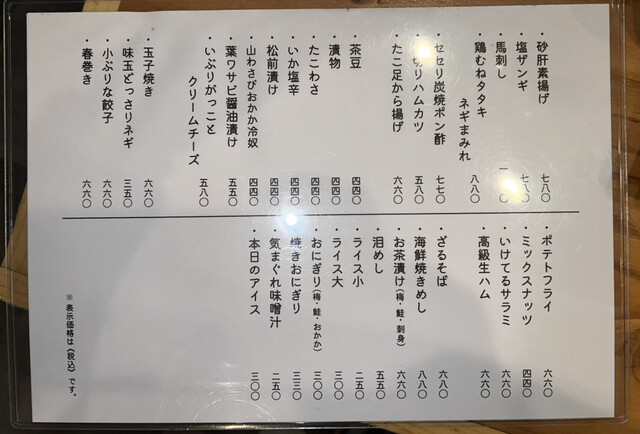 ・砂肝素揚げ 七八〇
・塩ザンギ 七八〇
・馬刺し 一
・鶏むねタタキ
ネギまみれ 八八〇
・セセリ炭焼ポン酢 七七〇
切りハムカツ 五八〇
・たこ足から揚げ 六六〇
・茶豆 四四〇
・漬物 四四〇
・たこわさ 四四〇
・いか塩辛 四四〇
・松前漬け 四四〇
・山わさびおかか冷奴 四四〇
・葉ワサビ醤油漬け 五五〇
・いぶりがっこと
クリームチーズ 五八〇
・玉子焼き 六六〇
・味玉どっさりネギ 三五〇
・小ぶりな餃子 六六〇
・春巻き 六六〇
・ポテトフライ 六六〇
・ミックスナッツ 四四〇
・いけてるサラミ 六六〇
・高級生ハム 六六〇
・ざるそば 六八〇
・海鮮焼きめし 八八〇
・お茶漬け(梅・鮭・刺身) 六六〇
・泪めし 五五〇
・ライス小 二五〇
・ライス大 三〇〇
・おにぎり(梅・鮭・おかか) 三〇〇
・焼きおにぎり 三三〇
・気まぐれ味噌汁 二五〇
・本日のアイス 三〇〇
※表示価格は(税込)です。